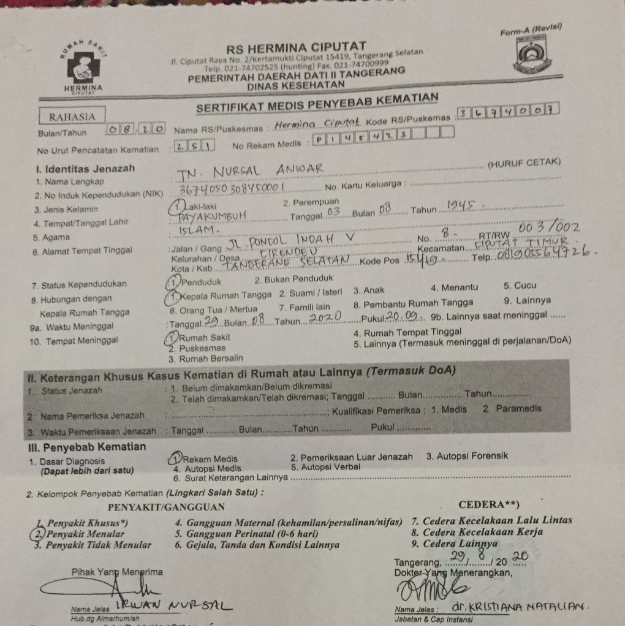 Form-A (Revisi)
RUMAH SAKIT
HERMINA
CIPUTAT
RS HERMINA CIPUTAT
Jl. Ciputat Raya No. 2/Kertamukti Ciputat 15419, Tangerang Selatan
Telp. 021-74702525 (hunting) Fax. 021-74700999
PEMERINTAH DAERAH DATI II TANGERANG
DINAS KESEHATAN
SERTIFIKAT MEDIS PENYEBAB KEMATIAN
RAHASIA
Bulan/Tahun 0820 Nama RS/Puskesmas : Hermina Ciputat Kode RS/Puskemas 3674007
No Urut Pencatatan Kematian : 251 No Rekam Medis : P145423
I. Identitas Jenazah
1. Nama Lengkap : TN. NURSAL ANWAR (HURUF CETAK)
2. No Induk Kependudukan (NIK) : 3674050308450001 No. Kartu Keluarga :
3. Jenis Kelamin : 1. Laki-laki 2. Perempuan
4. Tempat/Tanggal Lahir : PAYAKUMBUH Tanggal 03 Bulan 08 Tahun 1945
5. Agama : ISLAM
6. Alamat Tempat Tinggal : Jalan / Gang JL. PONDOL INDAH V No. 8 RT/RW 003/002
Kelurahan / Desa CIRENDEU Kecamatan CIPUTAT TIMUR
Kota / Kab TANGERANG SELATAN Kode Pos 15419 Telp.
7. Status Kependudukan : 1. Penduduk 2. Bukan Penduduk
8. Hubungan dengan : 1. Kepala Rumah Tangga 2. Suami / Isteri 3. Anak 4. Menantu 5. Cucu
Kepala Rumah Tangga 6. Orang Tua / Mertua 7. Famili lain 8. Pembantu Rumah Tangga 9. Lainnya
9a. Waktu Meninggal : Tanggal 29 Bulan 08 Tahun 2020 Pukul 20.09 9b. Lainnya saat meninggal
10. Tempat Meninggal : 1. Rumah Sakit 4. Rumah Tempat Tinggal
2. Puskesmas 5. Lainnya (Termasuk meninggal di perjalanan/DoA)
3. Rumah Bersalin
II. Keterangan Khusus Kasus Kematian di Rumah atau Lainnya (Termasuk DoA)
1. Status Jenazah : 1. Belum dimakamkan/Belum dikremasi
2. Telah dimakamkan/Telah dikremasi; Tanggal Bulan Tahun
2 Nama Pemeriksa Jenazah : Kualifikasi Pemeriksa : 1. Medis 2. Paramedis
3. Waktu Pemeriksaan Jenazah : Tanggal Bulan Tahun Pukul
III. Penyebab Kematian
1. Dasar Diagnosis : 1. Rekam Medis 2. Pemeriksaan Luar Jenazah 3. Autopsi Forensik
(Dapat lebih dari satu) 4. Autopsi Medis 5. Autopsi Verbal
6. Surat Keterangan Lainnya
2. Kelompok Penyebab Kematian (Lingkari Salah Satu) :
PENYAKIT/GANGGUAN CEDERA**)
1. Penyakit Khusus*) 4. Gangguan Maternal (kehamilan/persalinan/nifas) 7. Cedera Kecelakaan Lalu Lintas
2. Penyakit Menular 5. Gangguan Perinatal (0-6 hari) 8. Cedera Kecelakaan Kerja
3. Penyakit Tidak Menular 6. Gejala, Tanda dan Kondisi Lainnya 9. Cedera Lainnya
Tangerang, 29, 8 / 20 20
Pihak Yang Menerima Dokter Yang Menerangkan,
Nama Jelas IRWAN NURSAL Nama Jelas : dr. KRISTIANA NATALIAN.
Hub.dg Almarhum/ah Jabatan & Cap Instansi